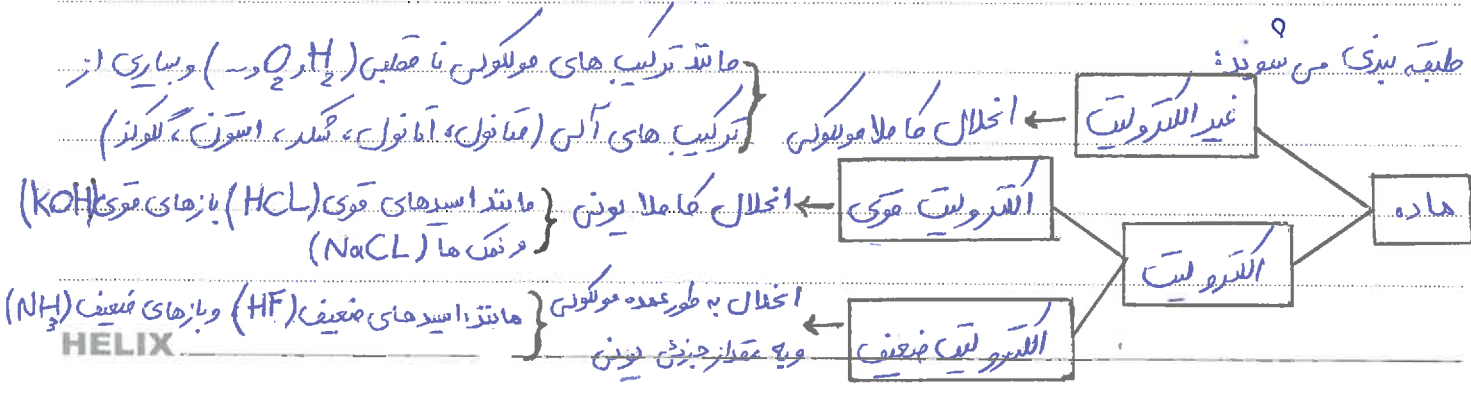 طبقه بندی می شوند:
ماده
غیر الکترولیت ← انحلال کاملا مولکولی
مانند ترکیب های مولکولی نا قطبی (H₂ و O₂ و ...) و بسیاری از
ترکیب های آلی (متانول، اتانول، شکر، استون، گلوکز)
الکترولیت
الکترولیت قوی ← انحلال کاملا یونی
مانند اسیدهای قوی (HCL) بازهای قوی (KOH)
و نمک ها (NaCL)
الکترولیت ضعیف ← انحلال به طور عمده مولکولی
و به مقدار جزئی یونی
مانند: اسیدهای ضعیف (HF) و بازهای ضعیف (NH₃)
HELIX